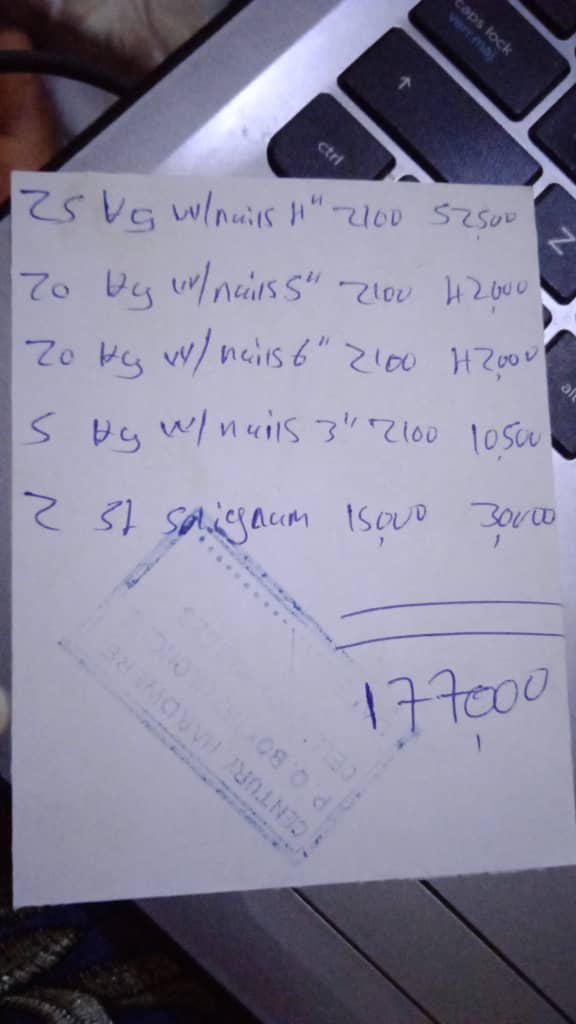 25 kg w/nails 4" 2100 52,500
20 kg w/nails 5" 2100 42,000
20 kg w/nails 6" 2100 42,000
5 kg w/nails 3" 2100 10,500
2 5l solignum 15,000 30,000
177,000
CENTURY HARDWARE
P.O. BOX
CELL
caps lock
verr.maj
ctrl
Z
alt